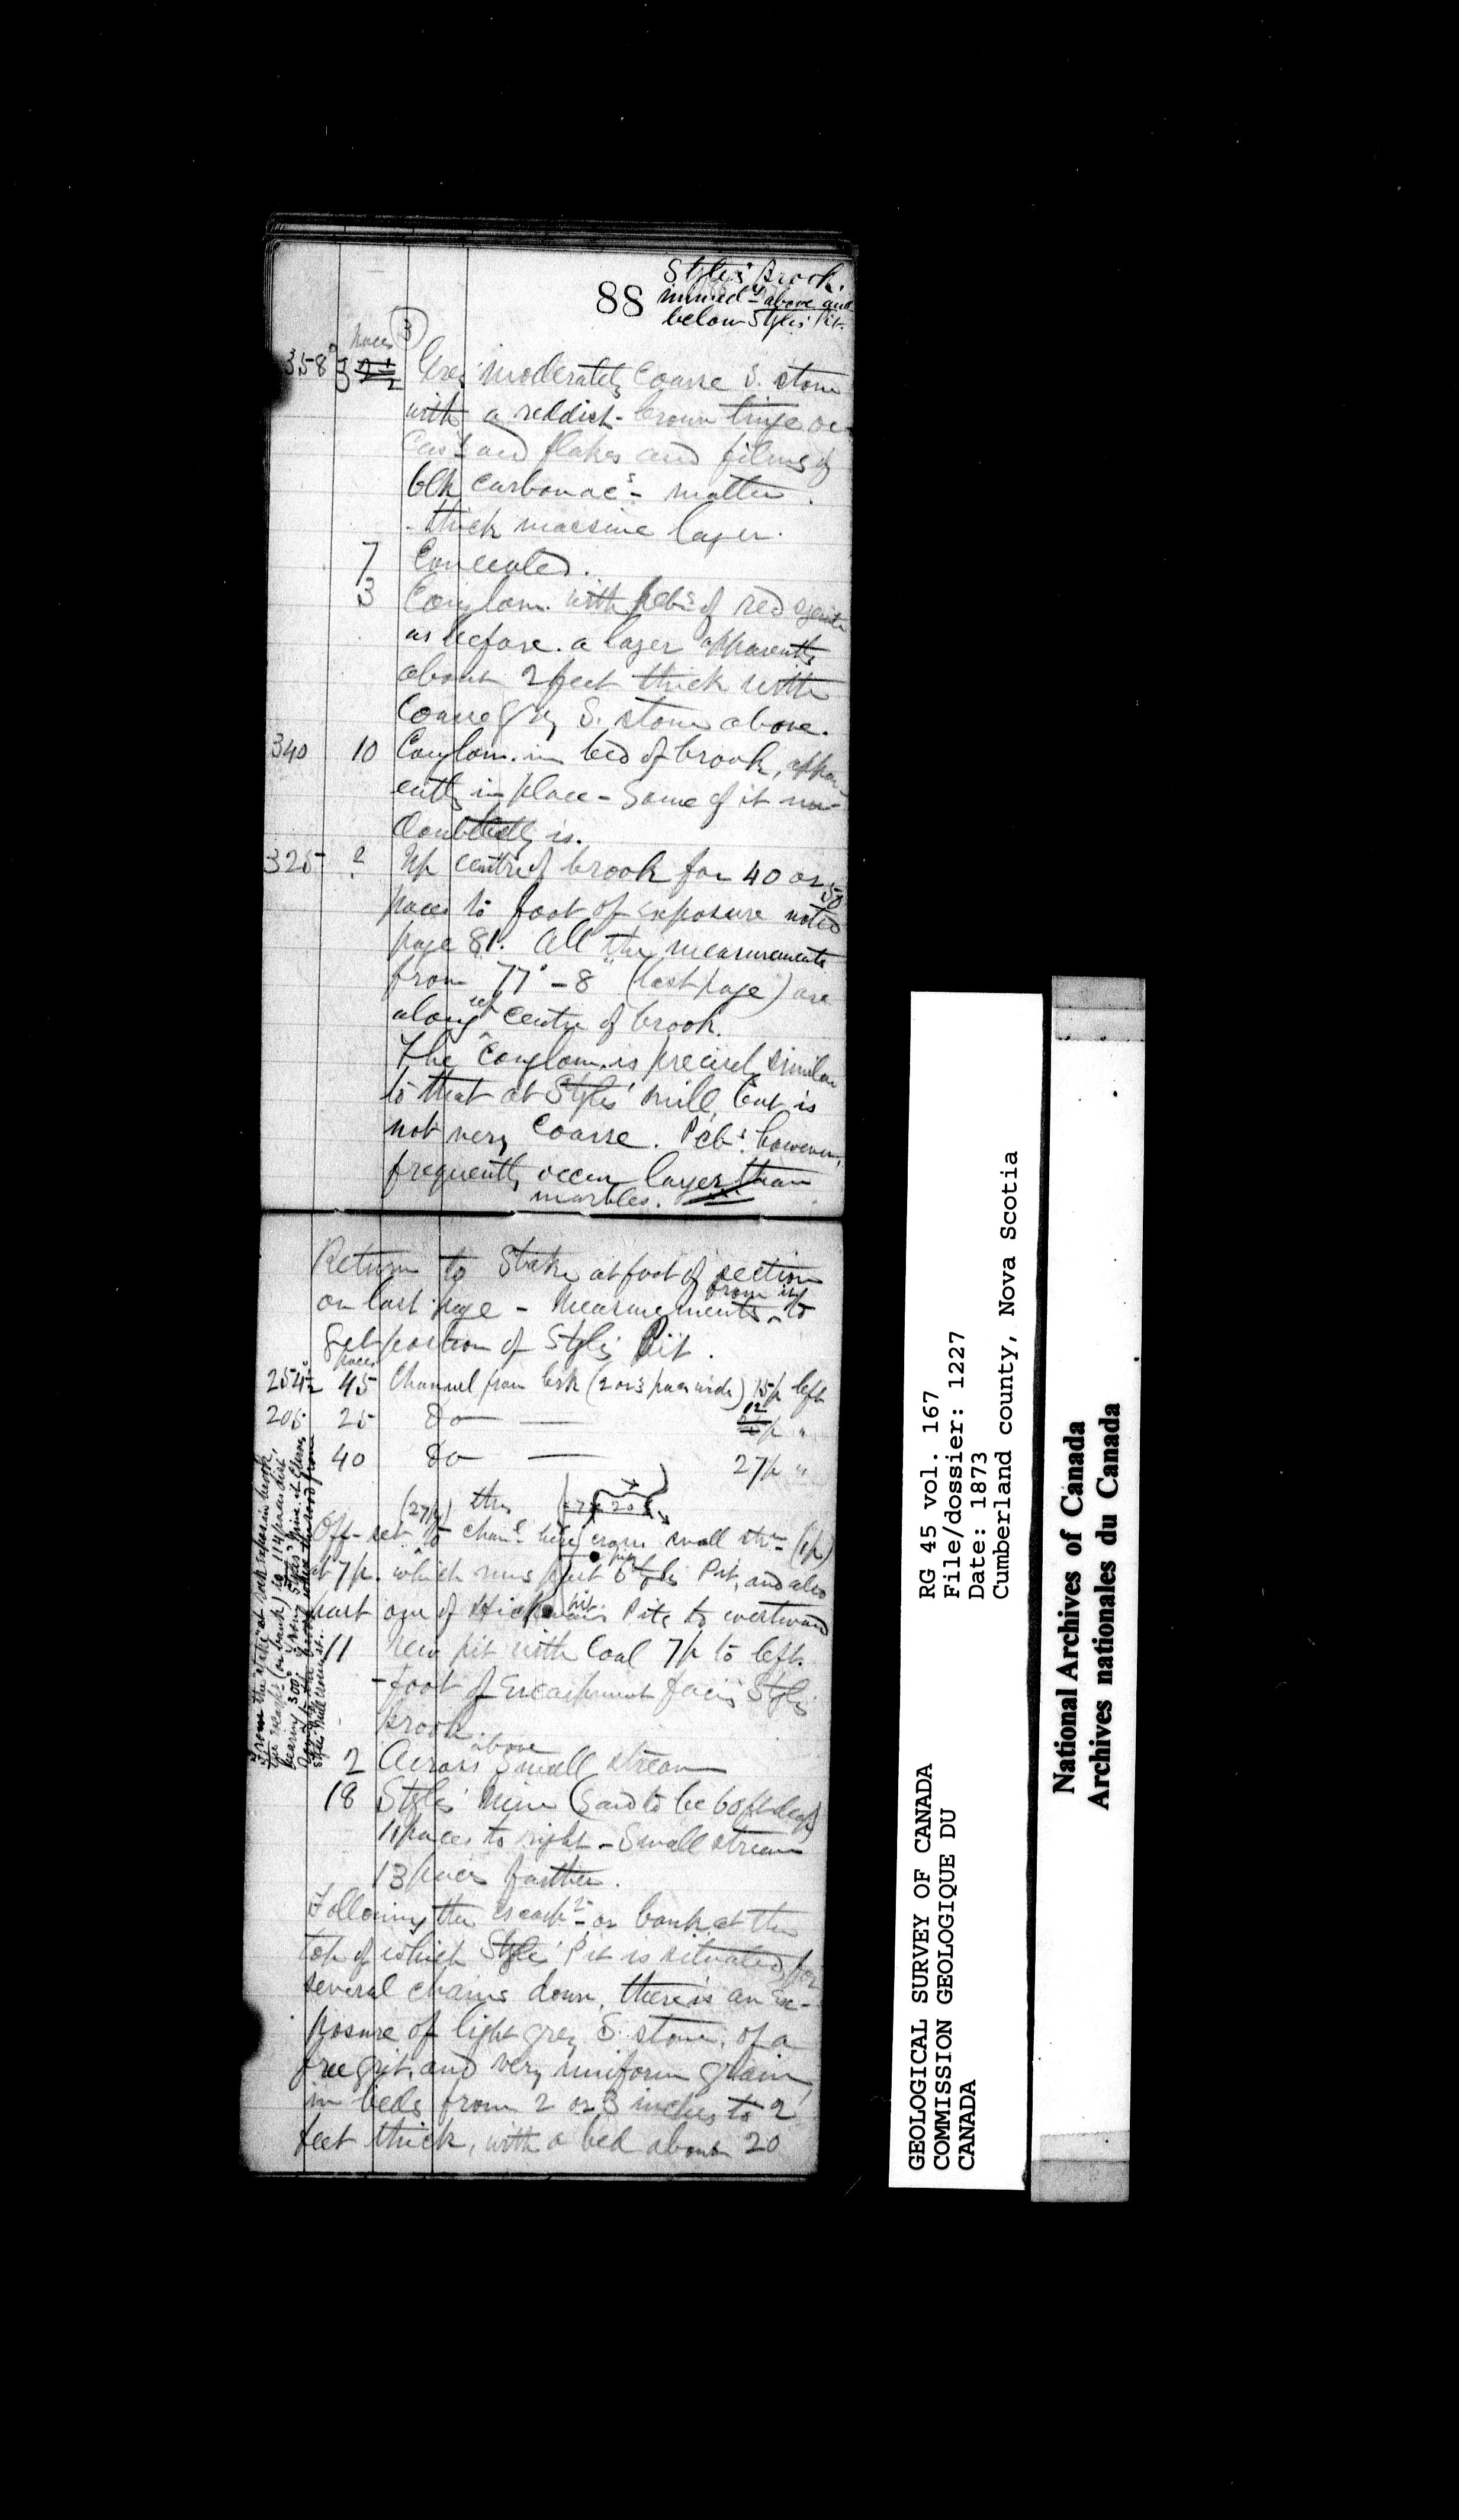 88
Styles' Brook.
immed^y above and
below Styles' Pit.
paces
3
358° 3 Grey moderately coarse S. stone
with a reddish-brown tinge oc-
cas^l and flakes and films of
blk carbonac^s matter.
- thick massive layer.
7 Concealed.
3 Conglom. with pebs of red syenite
as before. a layer apparently
about 2 feet thick with
Coarse grey S. stone above.
340 10 Conglom. in bed of brook, appar-
ently in place - Some of it un-
doubtedly is.
325 ? Up centre of brook for 40 or 50
paces to foot of exposure noted
page 81. All the measurements
from "77° - 8" (last page) are
along centre of brook.
The Conglom. is precisely similar
to that at Styles' mill, but is
not very coarse. Pebs. however,
frequently occur larger than
marbles.
Return to Stake at foot of section
on last page - Measurements from it to
get position of Styles Pit.
paces
254½° 45 Channel from brk (2 or 3 paces wide) 15p left
205 25 Do — 12 p "
40 Do — 27p "
(27p) thus 7 20
Off-set to chan^l here crosses small str^m (1p)
at 7p. which runs past Styles Pit, and also
past one of Pits to westward
11 New pit with Coal 7p to left.
- foot of Escarpment facing Styles
brook above
2 Across small stream
18 Styles' Mine (Said to be 60 ft deep)
11 paces to right - Small stream
13 paces further.
Following the escarp^t or bank at the
top of which Styles' Pit is situated, for
several chains down, there is an Ex-
posure of light grey S. stone, of a
free grit, and very uniform grain,
in beds from 2 or 3 inches to 2
feet thick, with a bed about 20
From the stake at rock expos. in brook,
the escarp^t (or bank) is 114 paces dist
bearing 300°.
GEOLOGICAL SURVEY OF CANADA
COMMISSION GEOLOGIQUE DU
CANADA
RG 45 vol. 167
File/dossier: 1227
Date: 1873
Cumberland county, Nova Scotia
National Archives of Canada
Archives nationales du Canada